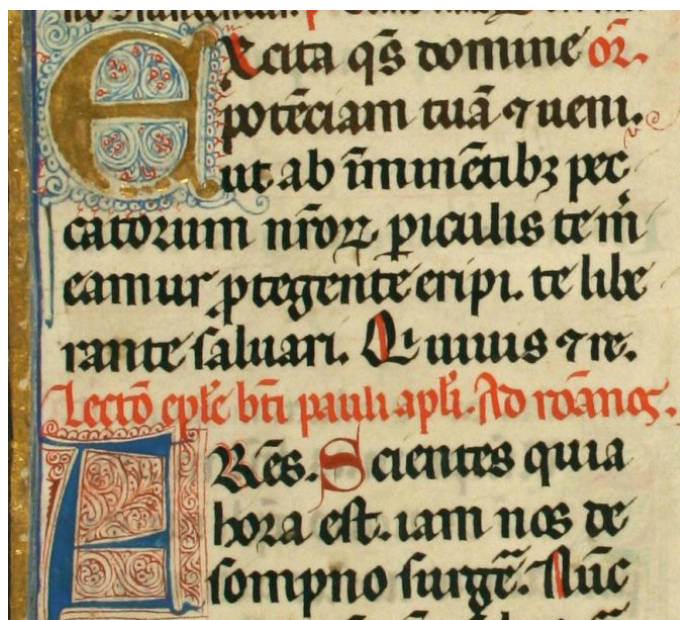 Excita qs̄ domine or̄.
potēciam tuā ⁊ ueni.
ut ab īminētibꝫ pec
catorum nr̄oꝝ ꝑiculis te m̉
eamur ꝓtegente eripi. te libe
rante saluari. Qui uiuis ⁊ re.
Lectō epłe bt̄i pauli apłi. Ad roānos.
FRēs. Scientes quia
hora est. iam nos de
sompno surgē. Nūc